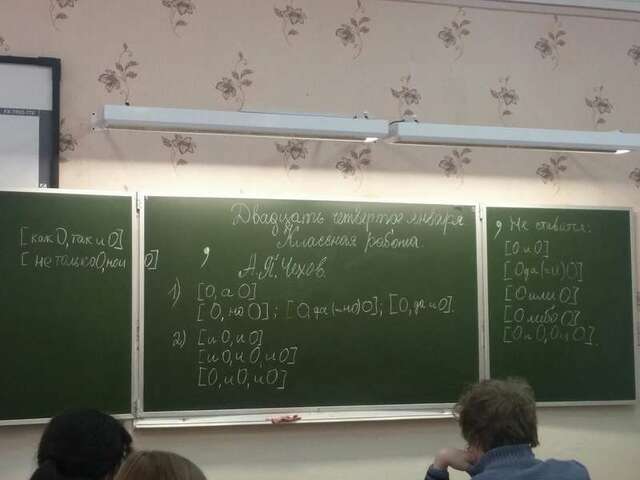 [как О, так и О]
[не только О, но и О]
Двадцать четвёртое января.
Классная работа.
,
А.П. Чехов.
1) [О, а О]
[О, но О]; [О, да (=но) О]; [О, да и О].
2) [и О, и О]
[и О, и О, и О]
[О, и О, и О]
, Не ставится:
[О и О]
[О да (=и) О]
[О или О]
[О либо О]
[О и О, О и О]